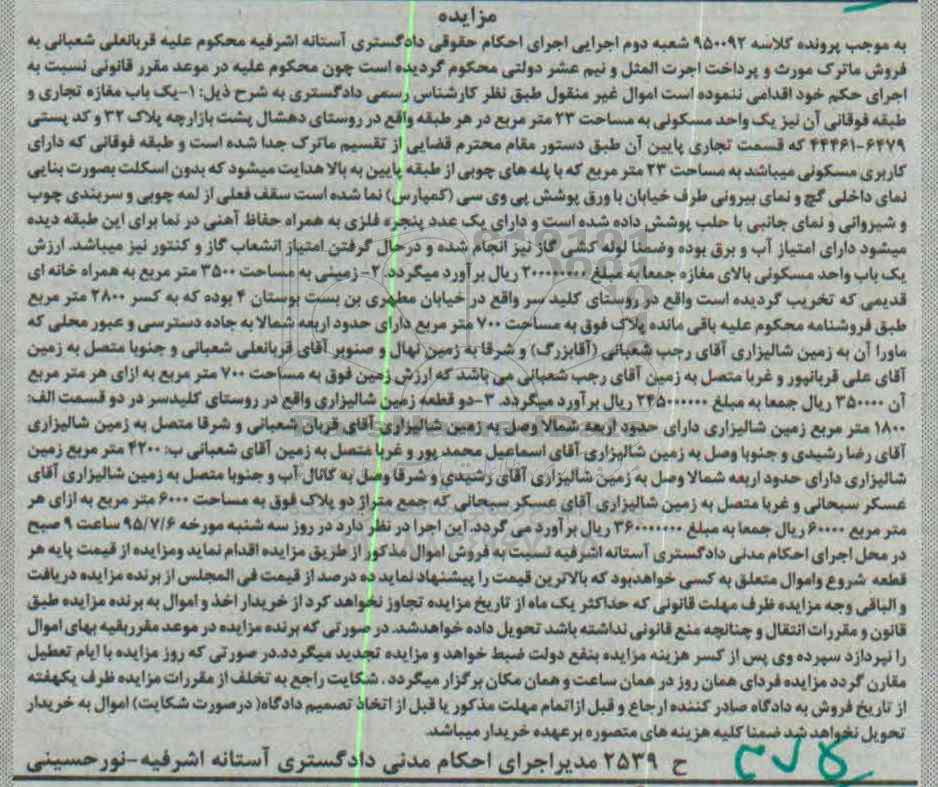 مزایده
به موجب پرونده کلاسه ۹۵۰۰۹۲ شعبه دوم اجرایی اجرای احکام حقوقی دادگستری آستانه اشرفیه محکوم علیه قربانعلی شعبانی به
فروش ماترک مورث و پرداخت اجرت المثل و نیم عشر دولتی محکوم گردیده است چون محکوم علیه در موعد مقرر قانونی نسبت به
اجرای حکم خود اقدامی ننموده است اموال غیر منقول طبق نظر کارشناس رسمی دادگستری به شرح ذیل: ۱-یک باب مغازه تجاری و
طبقه فوقانی آن نیز یک واحد مسکونی به مساحت ۲۳ متر مربع در هر طبقه واقع در روستای دهشال پشت بازارچه پلاک ۳۲ و کد پستی
۴۴۴۶۱-۶۴۷۹ که قسمت تجاری پایین آن طبق دستور مقام محترم قضایی از تقسیم ماترک جدا شده است و طبقه فوقانی که دارای
کاربری مسکونی میباشد به مساحت ۲۳ متر مربع که با پله های چوبی از طبقه پایین به بالا هدایت میشود که بدون اسکلت بصورت بنایی
نمای داخلی گچ و نمای بیرونی طرف خیابان با ورق پوشش پی وی سی (کمپارس) نما شده است سقف فعلی از لمه چوبی و سربندی چوب
و شیروانی و نمای جانبی با حلب پوشش داده شده است و دارای یک عدد پنجره فلزی به همراه حفاظ آهنی در نما برای این طبقه دیده
میشود دارای امتیاز آب و برق بوده وضمنا لوله کشی گاز نیز انجام شده و درحال گرفتن امتیاز انشعاب گاز و کنتور نیز میباشد. ارزش
یک باب واحد مسکونی بالای مغازه جمعا به مبلغ ۲۰۰۰۰۰۰۰۰ ریال برآورد میگردد. ۲-زمینی به مساحت ۳۵۰۰ متر مربع به همراه خانه ای
قدیمی که تخریب گردیده است واقع در روستای کلید سر واقع در خیابان مطهری بن بست بوستان ۴ بوده که به کسر ۲۸۰۰ متر مربع
طبق فروشنامه محکوم علیه باقی مانده پلاک فوق به مساحت ۷۰۰ متر مربع دارای حدود اربعه شمالا به جاده دسترسی و عبور محلی که
ماورا آن به زمین شالیزاری آقای رجب شعبانی (آقابزرگ) و شرقا به زمین نهال و صنوبر آقای قربانعلی شعبانی و جنوبا متصل به زمین
آقای علی قربانپور و غربا متصل به زمین آقای رجب شعبانی می باشد که ارزش زمین فوق به مساحت ۷۰۰ متر مربع به ازای هر متر مربع
آن ۳۵۰۰۰۰ ریال جمعا به مبلغ ۲۴۵۰۰۰۰۰۰ ریال برآورد میگردد. ۳-دو قطعه زمین شالیزاری واقع در روستای کلیدسر در دو قسمت الف:
۱۸۰۰ متر مربع زمین شالیزاری دارای حدود اربعه شمالا وصل به زمین شالیزاری آقای قربان شعبانی و شرقا متصل به زمین شالیزاری
آقای رضا رشیدی و جنوبا وصل به زمین شالیزاری آقای اسماعیل محمد پور و غربا متصل به زمین آقای شعبانی ب: ۴۲۰۰ متر مربع زمین
شالیزاری دارای حدود اربعه شمالا وصل به زمین شالیزاری آقای رشیدی و شرقا وصل به کانال آب و جنوبا متصل به زمین شالیزاری آقای
عسکر سبحانی و غربا متصل به زمین شالیزاری آقای عسکر سبحانی که جمع متراژ دو پلاک فوق به مساحت ۶۰۰۰ متر مربع به ازای هر
متر مربع ۶۰۰۰۰ ریال جمعا به مبلغ ۳۶۰۰۰۰۰۰۰ ریال برآورد می گردد. این اجرا در نظر دارد در روز سه شنبه مورخه ۹۵/۷/۶ ساعت ۹ صبح
در محل اجرای احکام مدنی دادگستری آستانه اشرفیه نسبت به فروش اموال مذکور از طریق مزایده اقدام نماید ومزایده از قیمت پایه هر
قطعه شروع واموال متعلق به کسی خواهدبود که بالاترین قیمت را پیشنهاد نماید ده درصد از قیمت فی المجلس از برنده مزایده دریافت
و الباقی وجه مزایده ظرف مهلت قانونی که حداکثر یک ماه از تاریخ مزایده تجاوز نخواهد کرد از خریدار اخذ و اموال به برنده مزایده طبق
قانون و مقررات انتقال و چنانچه منع قانونی نداشته باشد تحویل داده خواهدشد. در صورتی که برنده مزایده در موعد مقرربقیه بهای اموال
را نپردازد سپرده وی پس از کسر هزینه مزایده بنفع دولت ضبط خواهد و مزایده تجدید میگردد.در صورتی که روز مزایده با ایام تعطیل
مقارن گردد مزایده فردای همان روز در همان ساعت و همان مکان برگزار میگردد. شکایت راجع به تخلف از مقررات مزایده ظرف یکهفته
از تاریخ فروش به دادگاه صادر کننده ارجاع و قبل ازاتمام مهلت مذکور یا قبل از اتخاذ تصمیم دادگاه( درصورت شکایت) اموال به خریدار
تحویل نخواهد شد ضمنا کلیه هزینه های متصوره برعهده خریدار میباشد.
ح ۲۵۳۹ مدیراجرای احکام مدنی دادگستری آستانه اشرفیه-نورحسینی